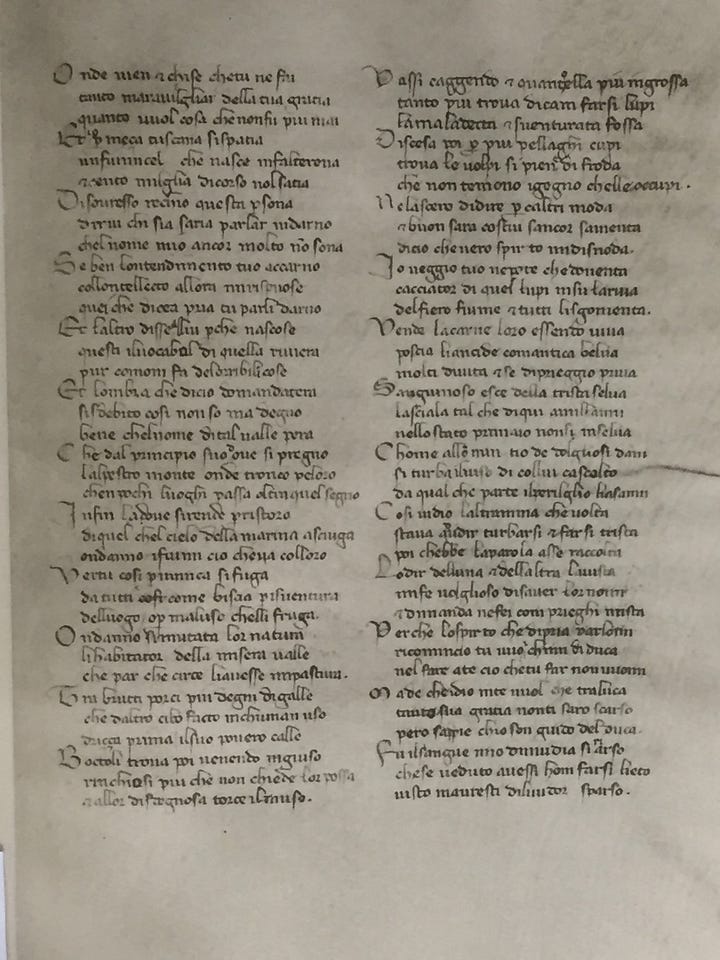 Onde uien & chi se che tu ne fai
tanto marauilghiar della tua gratia
quanto uuol cosa che non fu piu mai
Et p meça tuscana si spatia
un fiumicel che nasce in falterona
& cento miglia di corso nol satia
Di souresso rechio questa psona
dirui chi sia saria parlar indarno
chel nome mio ancor molto nō sona
Se ben lontendimento tuo accarno
collontellecto allora mi rispuose
quei che dicea pria tu parli darno
Et laltro disse allui pche nascose
questi il uocabol di quella riuiera
pur comom fa dellorribili cose
Et lombra che dicio domandatera
si sdebito cosi non so ma degno
bene chel nome di tal ualle pera
Che dal principio suo oue si pregno
lalpestro monte onde tronco peloro
chen pochi luoghi passa oltra quel segno
Infin la doue si rende p ristoro
di quel chel cielo della marina asciuga
ondanno i fiumi cio che ua colloro
Vertu cosi p inimica si fuga
da tutti come biscia p isuentura
del luogo op mal uso chelli fruga.
Ondanno si mutata lor natura
li habitator della misera ualle
che par che circe li auesse in pastura.
Tra brutti porci piu degni di galle
che daltro cibo facto in human uso
driçça prima il suo pouero calle
Bottoli troua poi uenendo in giuso
rinchiosi piu che non chiede lor possa
& allor disdegnosa torce il muso.
Vassi caggendo & quantella piu ingrossa
tanto piu troua di cani farsi lupi
la maladecta & suenturata fossa
Discesa poi p piu pellaghi cupi
troua le uolpi si piene di froda
che non temono igegno che lle occupi.
Ne lascero di dire p caltri moda
& buon sara costui sancor samenta
dicio che uero spirto mi disnoda.
Io ueggio tuo nepote che douenta
cacciator di quei lupi in su la riua
del fiero fiume & tutti li sgomenta.
Vende la carne loro essendo uiua
poscia li ancide come antica belua
molti di uita & se di preggio priua
Sanguinoso esce della trista selua
lasciala tal che di qui a mill anni
nello stato primaio non si rinselua
Chome allo nuntio de dolgliosi dani
si turba il uiso di collui cascolta
da qual che parte il periglio lassanni
Cosi uidio laltranima che uolta
staua a udir turbarsi & farsi trista
poi chebbe la parola a sse raccolta
Lo dir delluna & dellaltra la uista
mi fe uolglioso di sauer lor nomi
& dimanda ne fei com prieghi mista
Per che lo spirto che di pria parlomi
ricomincio tu uuoi chimi diduca
nel fare a te cio che tu far non uuomi
Ma da che dio in te uuol che traluca
tanto sua gratia non ti saro scarso
pero sappie chio son guido del duca.
Fu il sangue mio dinuidia si arso
che se ueduto auessi hom farsi lieto
uisto mauresti di liuidor sparso.